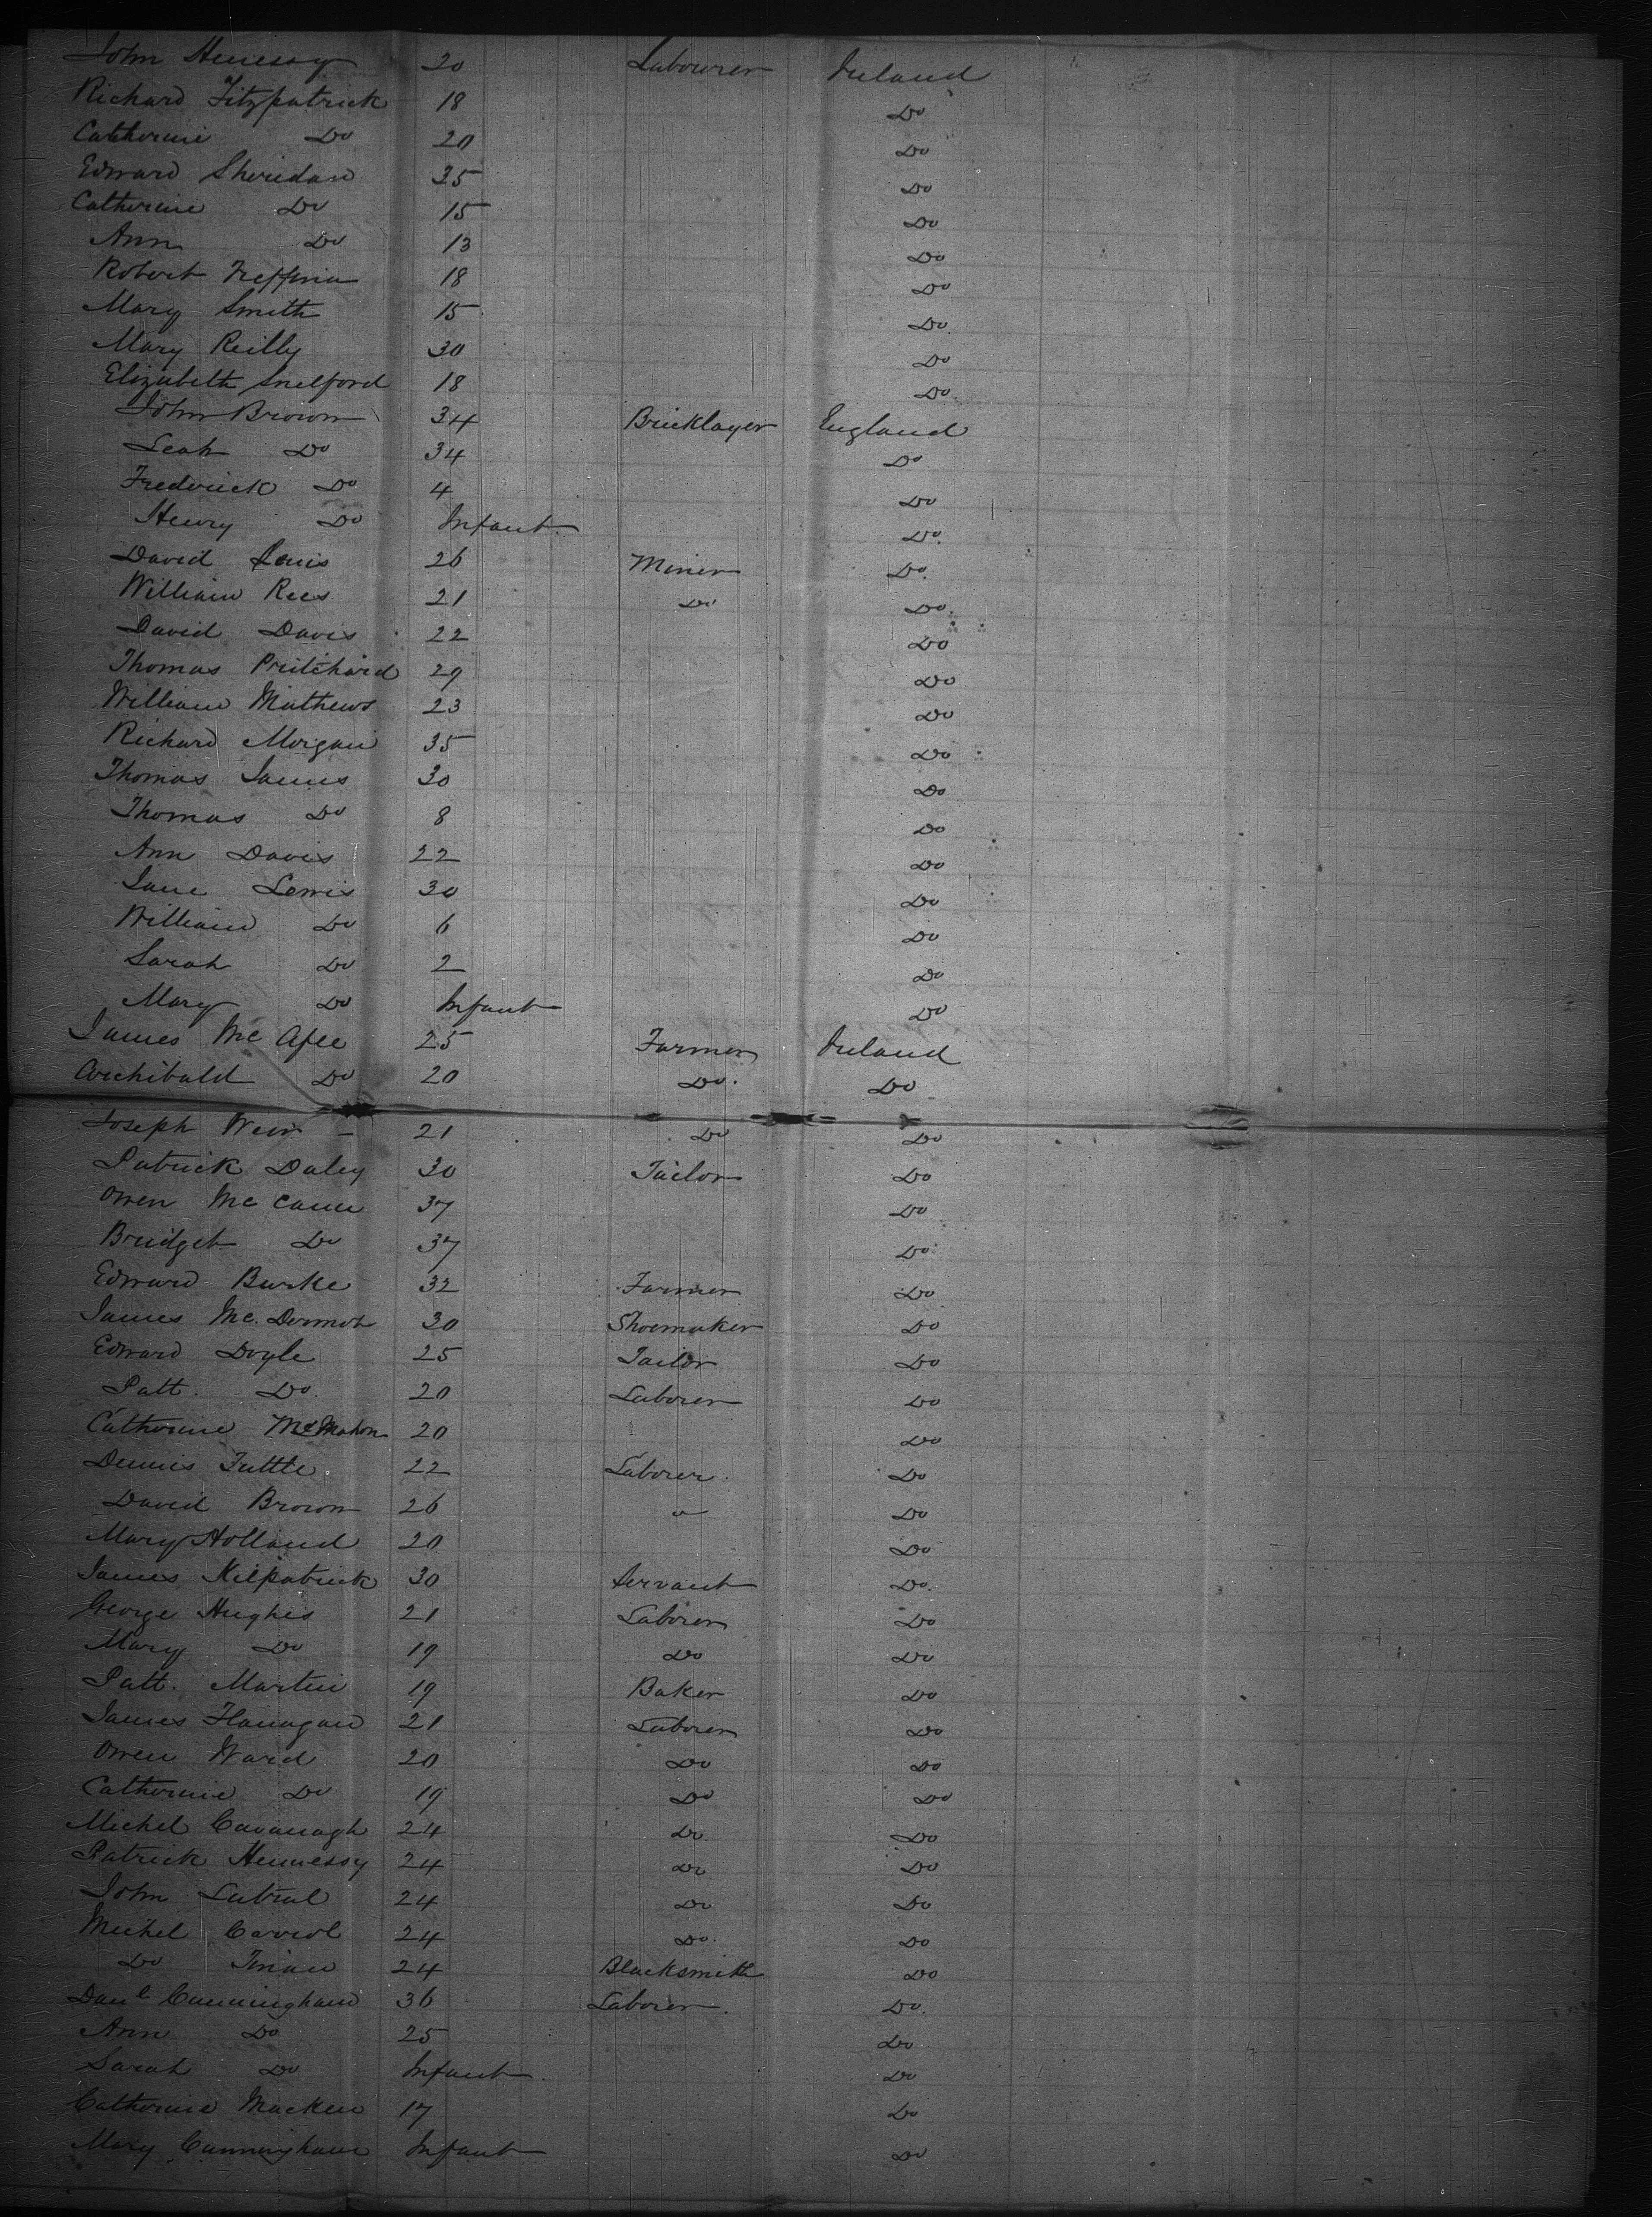 John Henessy 20 Labourer Ireland
Richard Fitzpatrick 18 Do
Catherine Do 20 Do
Edward Sheridan 35 Do
Catherine Do 15 Do
Ann Do 13 Do
Robert 18 Do
Mary Smith 15 Do
Mary Reilly 30 Do
Elizabeth Snelford 18 Do
John Brown 34 Bricklayer England
Leah Do 34 Do
Frederick Do 4 Do
Henry Do Infant Do
David Lewis 26 Miner Do
William Rees 21 Do Do
David Davis 22 Do
Thomas Pritchard 29 Do
William Mathews 23 Do
Richard Morgan 35 Do
Thomas James 30 Do
Thomas Do 8 Do
Ann Davis 22 Do
Jane Lewis 30 Do
William Do 6 Do
Sarah Do 2 Do
Mary Do Infant Do
James Mc Afee 25 Farmer Ireland
Archibald Do 20 Do Do
Joseph Weir 21 Do Do
Patrick Daley 30 Tailor Do
Owen Mc Cann 37 Do
Bridget Do 37 Do
Edward Burke 32 Farmer Do
James Mc Dermot 30 Shoemaker Do
Edward Doyle 25 Tailor Do
Patt. Do 20 Laborer Do
Catherine McMahon 20 Do
Dennis Tuttle 22 Laborer Do
David Brown 26 " Do
Mary Holland 20 Do
James Kilpatrick 30 Servant Do
George Hughes 21 Laborer Do
Mary Do 19 Do Do
Patt. Martin 19 Baker Do
James Flanagan 21 Laborer Do
Owen Ward 20 Do Do
Catherine Do 19 Do Do
Michel Cavanagh 24 Do Do
Patrick Hennessy 24 Do Do
John 24 Do Do
Michel Carrol 24 Do Do
Do 24 Blacksmith Do
Danl Cunningham 36 Laborer Do
Ann Do 25 Do
Sarah Do Infant Do
Catherine Macken 17 Do
Mary Cunningham Infant Do